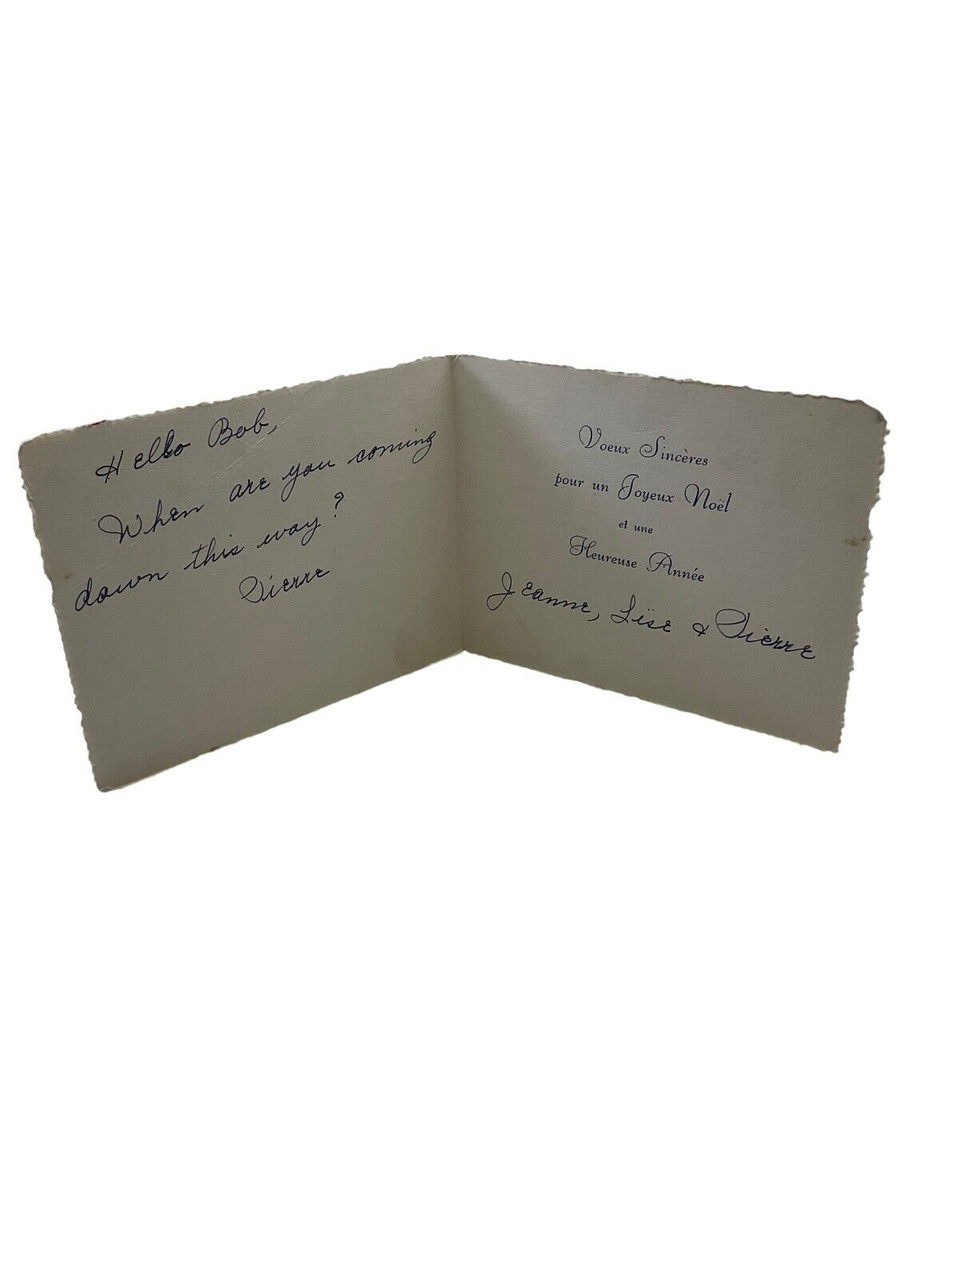 Hello Bob,
When are you coming
down this way?
Pierre
Voeux Sincères
pour un Joyeux Noël
et une
Heureuse Année
Jeanne, Lise & Pierre